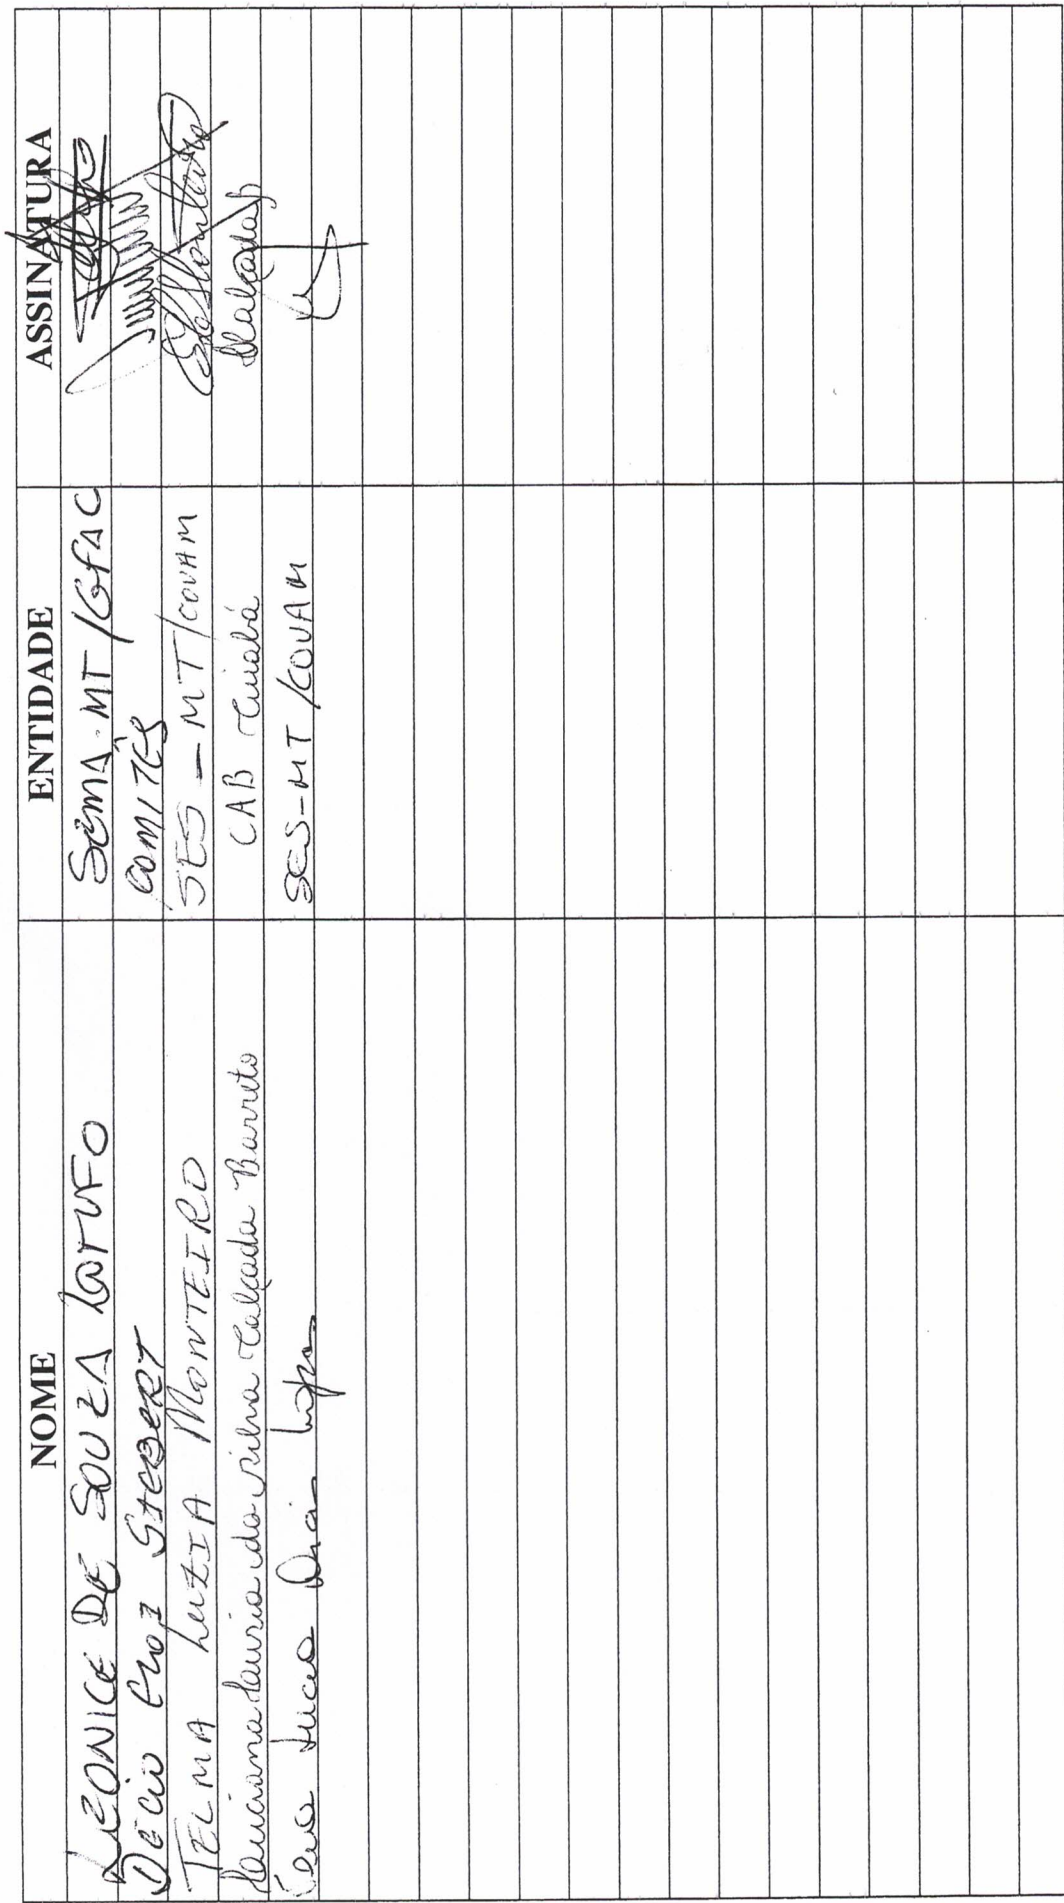 NOME ENTIDADE ASSINATURA
LEONICE DE SOUZA LOTUFO SEMA-MT/GFAC
Décio Eloi Siebert COMITÊS
TELMA LUZIA MONTEIRO SES-MT/COVAM Monteiro
Lauriana da Silva Calçada Barreto CAB Cuiabá Calçada
Vera Lucia Dias Lopes SES-MT/COVAM